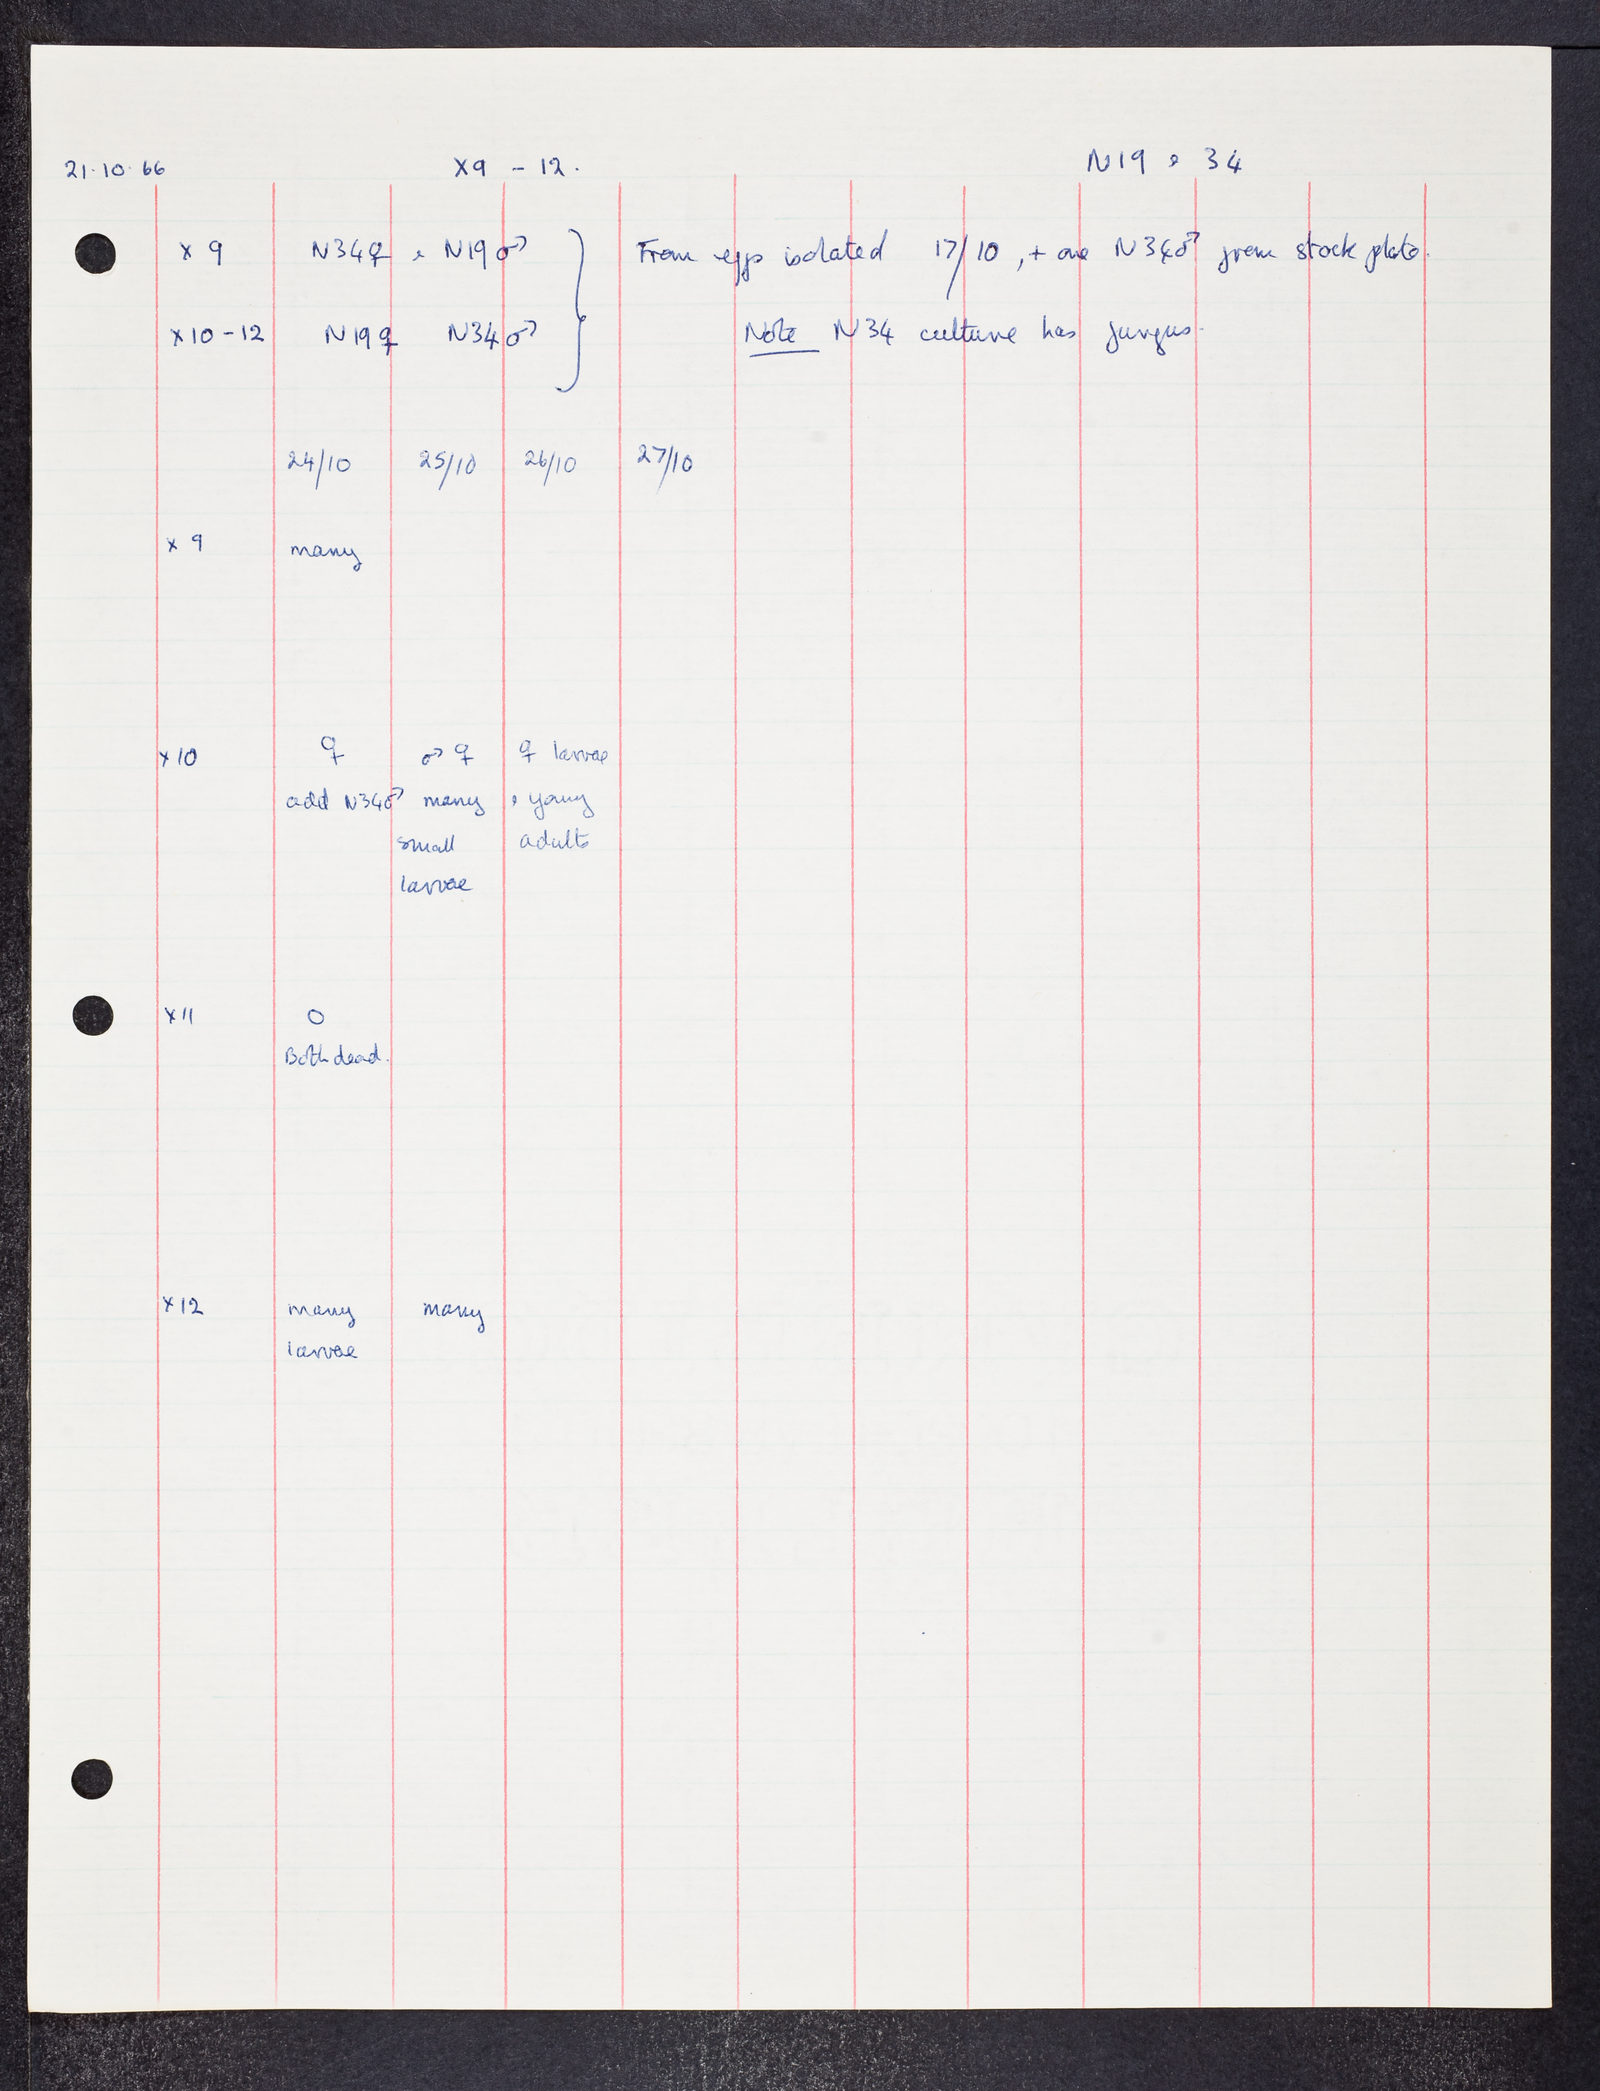 21.10.66 X9 - 12. N19 & 34
X 9 N34♀ & N19♂ From eggs isolated 17/10, + one N34♂ from stock plate.
X10-12 N19♀ N34♂ Note N34 culture has fungus.
24/10 25/10 26/10 27/10
X 9 many
X10 ♀ ♂ ♀ ♀ larvae
add N34♂ many & young
small adults
larvae
X11 0
Both dead.
X12 many many
larvae